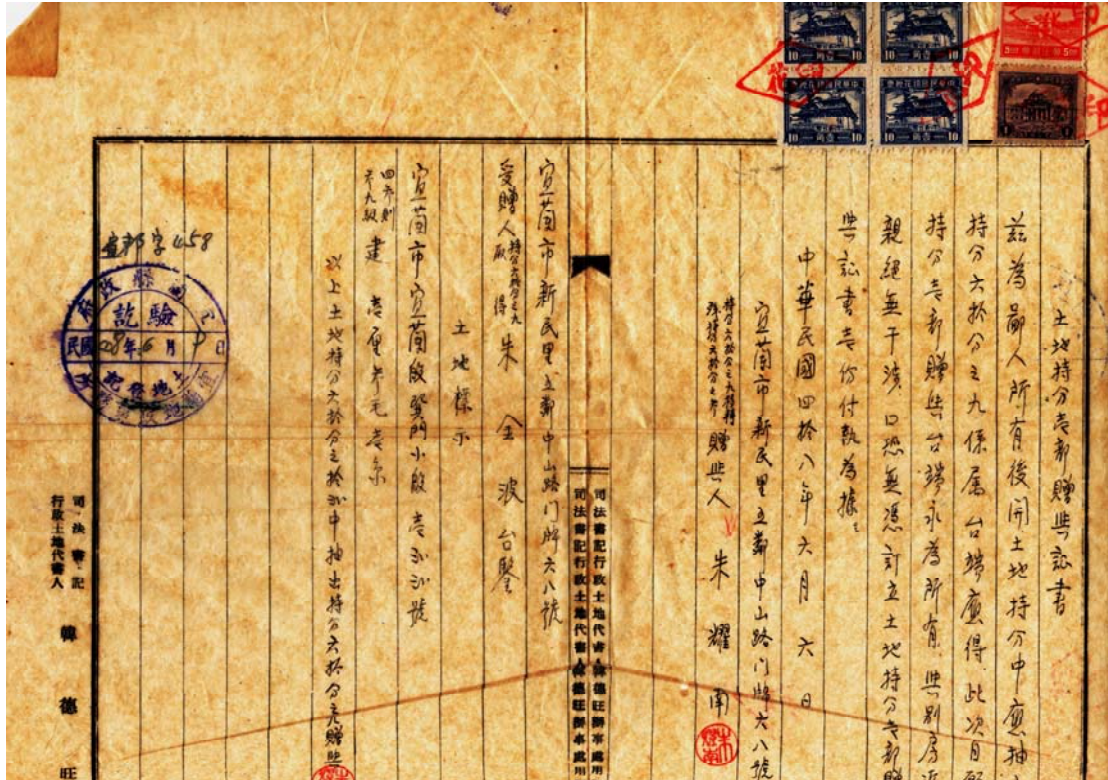 土地持分壱部贈與証書
茲為鄙人所有後開土地持分中應抽
持分六拾分之九係屬台端應得 此次自
持分壱部贈與台端永為所有 與別房
親絕無干涉 口恐無憑 訂立土地持分壱部
與証書壱份付執為據
中華民國四拾八年六月六日
宜蘭市新民里五鄰中山路門牌六八號
持分六拾分之九移轉
殘持分六拾分之
贈與人 朱耀南
司法書記行政土地代書人韓德旺辦事處用
司法書記行政土地代書人韓德旺辦事處用
宜蘭市新民里五鄰中山路門牌六八號
受贈人 持分六拾分之九 取得 朱金波 台鑒
土地標示
宜蘭市宜蘭段巽門小段 壱 號
四六則
九級
建 壱厘 毛壱糸
以上土地持分六拾分之拾 中抽出持分六拾分之九贈與
宜 字 458
縣政府
驗訖
民國48年6月 日
司法書記
行政土地代書人
韓德旺
中華民國印花稅票
壹角
10
10
壹角
10
10
壹角
10
10
壹角
10
10
5
1